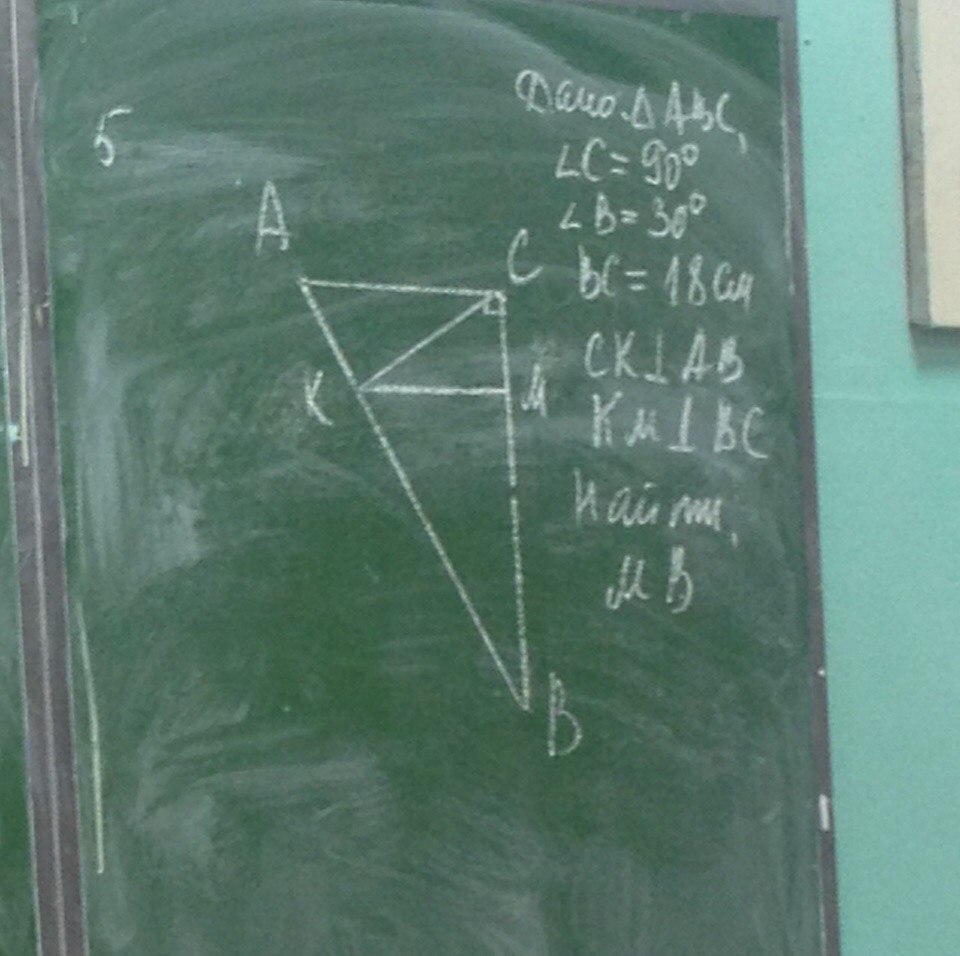 5
Дано: Δ ABC,
∠C = 90°
∠B = 30°
BC = 18 см
CK ⊥ AB
KM ⊥ BC
Найти:
MB
A
C
K
M
B